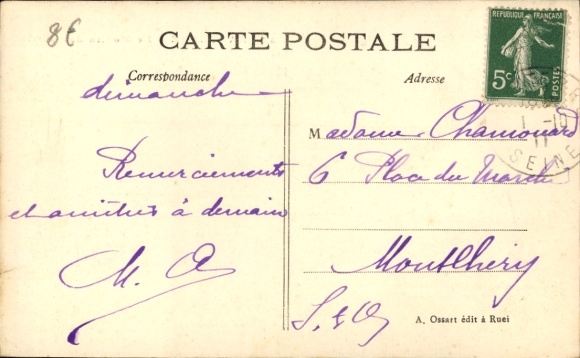 8€
CARTE POSTALE
RÉPUBLIQUE FRANÇAISE
5c
POSTES
Correspondance
Adresse
dimanche
1 -10
11
SEINE
Madame Chamouard
Remerciements
6 Place du Marché
et amitiés à demain
M. A
Montlhéry
S. & O.
A. Ossart édit à Ruei